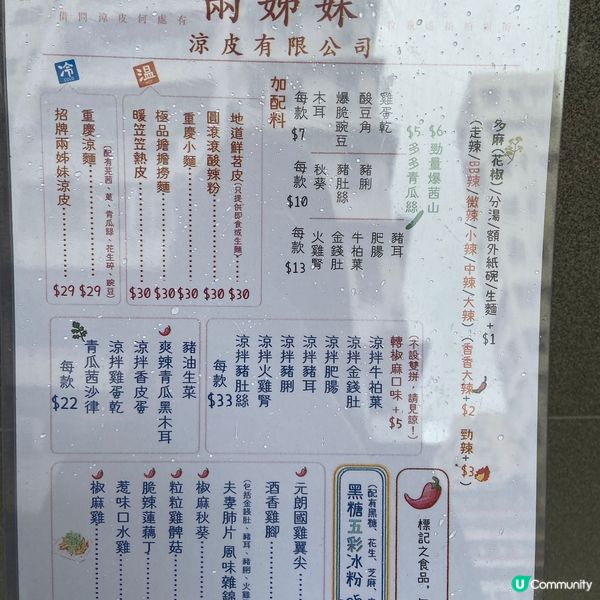 借問涼皮何處有
兩姊妹
涼皮有限公司
多麻(花椒)/分湯/額外紙碗/生麵 +$1
(走辣/BB辣/微辣/小辣/中辣/大辣)(香香大辣+$2 勁辣+$3)
$6 勁量爆茜山
$5 多多青瓜絲
加配料
雞蛋乾
酸豆角
爆脆豌豆
木耳
每款$7
豬脷
豬肚絲
秋葵
每款$10
豬耳
肥腸
牛柏葉
金錢肚
火雞腎
每款$13
溫
地道鮮苕皮(只提供即食或生麵) $30
圓滾滾酸辣粉 $30
重慶小麵 $30
極品擔擔撈麵 $30
暖笠笠熱皮 $30
冷
(配有芫茜、蔥、青瓜絲、花生碎、豌豆)
重慶涼麵 $29
招牌兩姊妹涼皮 $29
(不設雙拼,請見諒!)
轉椒麻口味+$5
涼拌牛柏葉
涼拌金錢肚
涼拌肥腸
涼拌豬耳
涼拌豬脷
涼拌火雞腎
涼拌豬肚絲
每款$33
豬油生菜
爽辣青瓜黑木耳
涼拌香皮蛋
涼拌雞蛋乾
青瓜茜沙律
每款$22
標記之食品
(配有黑糖、花生、芝麻、
黑糖五彩冰粉
元朗國雞翼尖
酒香雞腳
(包括金錢肚、豬耳、豬脷、火雞
夫妻肺片 風味雜錦
椒麻秋葵
粒粒雞髀菇
脆辣蓮藕丁
惹味口水雞
椒麻雞
U Community